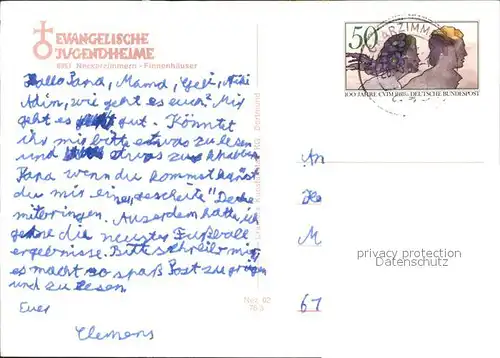 EVANGELISCHE
JUGENDHEIME
6951 Neckarzimmern - Finnenhäuser
Hallo Papa, Mama, Gebi, Aiki
Adim, wie geht es euch. Mir
geht es gut. Könntet
ihr mir bitte etwas zu lesen
und etwas zu knabbern
Papa wenn du kommst kanst
du mir eine „gescheite" Decke
mitbringen. Auserdem hätte ich
gerne die neusten Fußball
ergebnisse. Bitte schreibe mir,
es macht so spaß Post zu kriegen
und zu lesen.
Euer
Clemens
Nez. 62
76 s
50
ARZIMM
100 JAHRE CVJM 1982 DEUTSCHE BUNDESPOST
An
He
M
67
privacy protection
Datenschutz